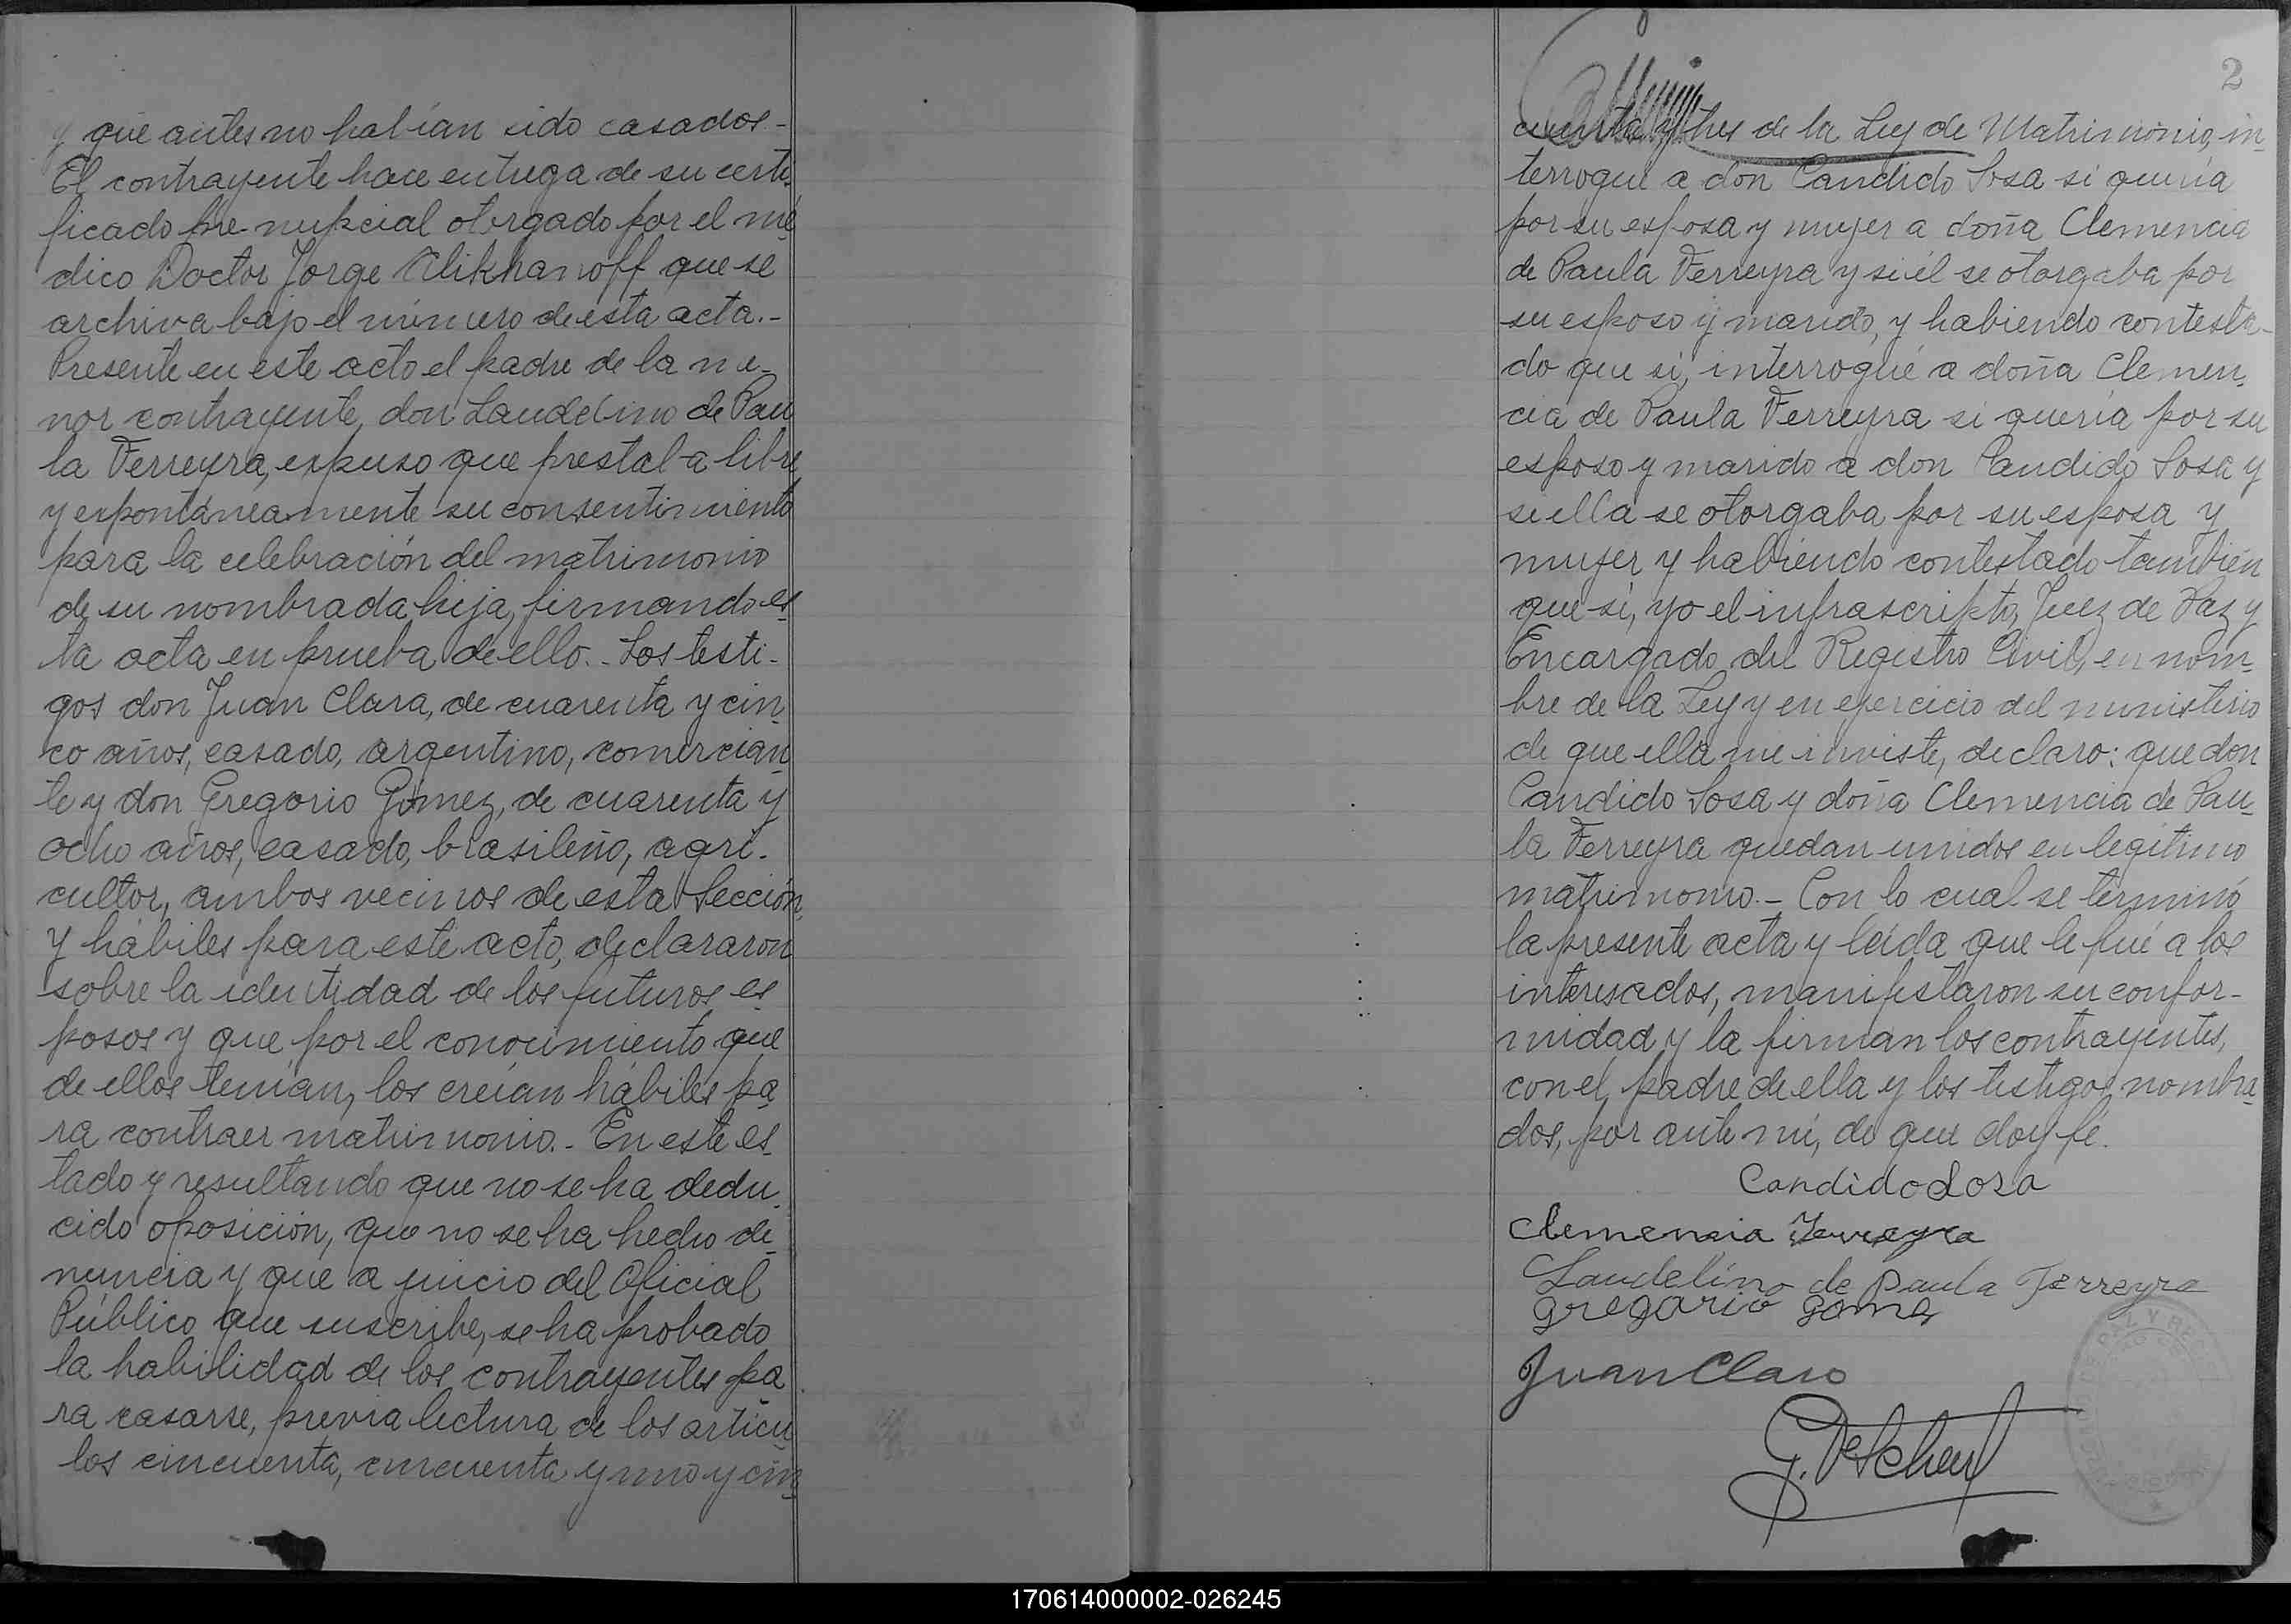 y que antes no habían sido casados.-
El contrayente hace entrega de su certi-
ficado pre-nupcial otorgado por el mé-
dico Doctor Jorge Alikhanoff que se
archiva bajo el número de esta acta.-
Presente en este acto el padre de la me-
nor contrayente, don Laudelino de Pau-
la Ferreyra, expuso que prestaba libre
y espontáneamente su consentimiento
para la celebración del matrimonio
de su nombrada hija, firmando es-
ta acta en prueba de ello.- Los testi-
gos don Juan Claro, de cuarenta y cin-
co años, casado, argentino, comercian-
te y don Gregorio Gómez, de cuarenta y
ocho años, casado, brasileño, agri-
cultor, ambos vecinos de esta Sección
y hábiles para este acto, declararon
sobre la identidad de los futuros es-
posos y que por el conocimiento que
de ellos tenían, los creían hábiles pa-
ra contraer matrimonio.- En este es-
tado y resultando que no se ha dedu-
cido oposición, que no se ha hecho de-
nuncia y que a juicio del Oficial
Público que suscribe, se ha probado
la habilidad de los contrayentes pa-
ra casarse, previa lectura de los artícu-
los cincuenta, cincuenta y uno y cin-
2
cuenta y tres de la Ley de Matrimonio, in-
terrogué a don Candido Sosa si quería
por su esposa y mujer a doña Clemencia
de Paula Ferreyra y si él se otorgaba por
su esposo y marido, y habiendo contesta-
do que sí, interrogué a doña Clemen-
cia de Paula Ferreyra si quería por su
esposo y marido a don Candido Sosa y
si ella se otorgaba por su esposa y
mujer y habiendo contestado también
que sí, yo el infrascripto, Juez de Paz y
Encargado del Registro Civil, en nom-
bre de la Ley y en ejercicio del ministerio
de que ella me inviste, declaro: que don
Candido Sosa y doña Clemencia de Pau-
la Ferreyra quedan unidos en legítimo
matrimonio.- Con lo cual se terminó
la presente acta y leída que le fué a los
interesados, manifestaron su confor-
midad y la firman los contrayentes,
con el padre de ella y los testigos nombra-
dos, por ante mí, de que doy fe.
Candido Sosa
Clemencia Ferreyra
Laudelino de Paula Ferreyra
Gregorio Gome
Juan Claro
170614000002-026245